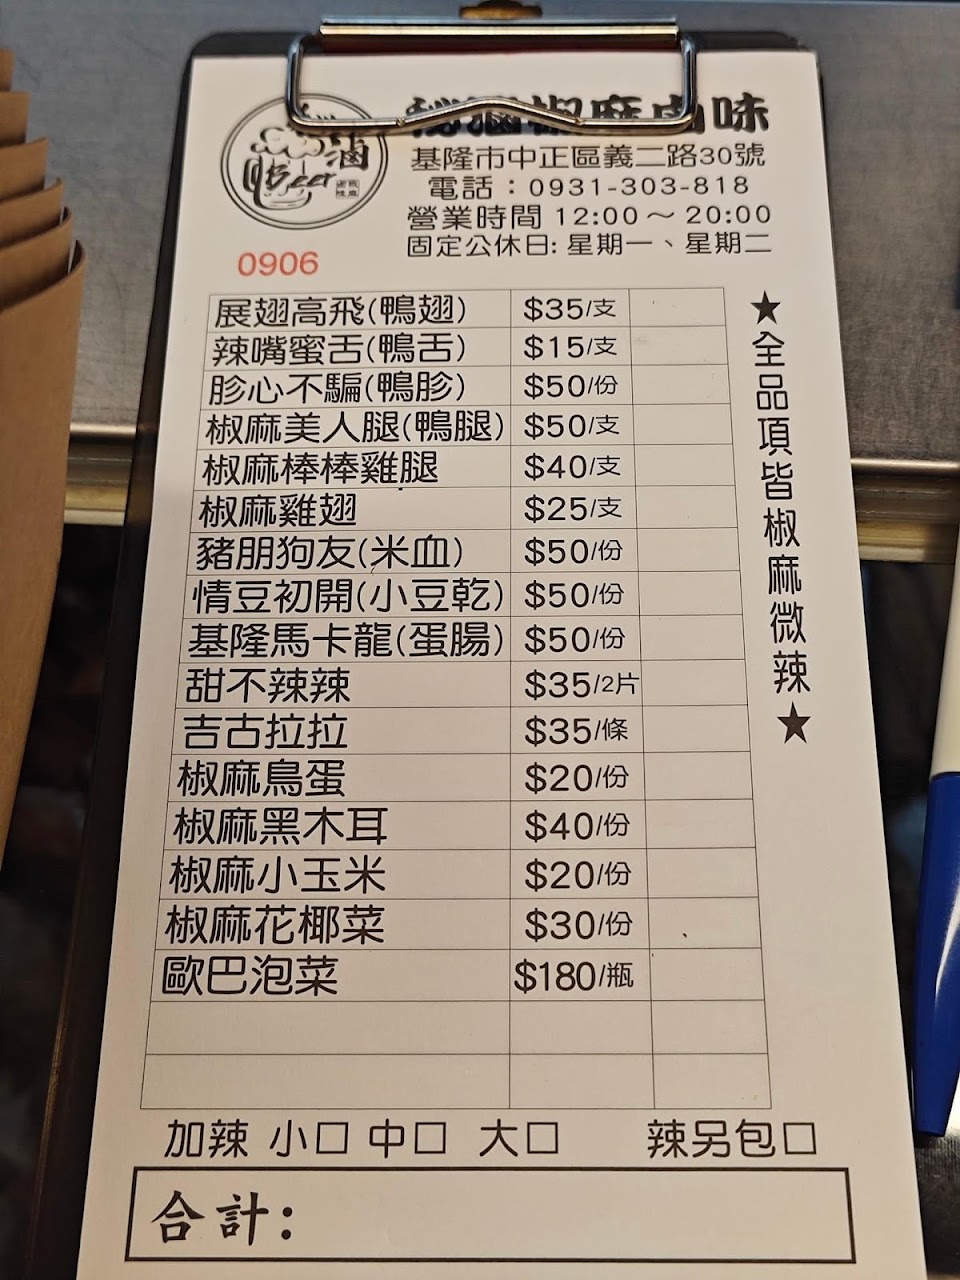 滷
Beer
椒麻滷味
基隆市中正區義二路30號
電話：0931-303-818
營業時間 12:00～20:00
固定公休日: 星期一、星期二
0906
展翅高飛(鴨翅) $35/支
辣嘴蜜舌(鴨舌) $15/支
胗心不騙(鴨胗) $50/份
椒麻美人腿(鴨腿) $50/支
椒麻棒棒雞腿 $40/支
椒麻雞翅 $25/支
豬朋狗友(米血) $50/份
情豆初開(小豆乾) $50/份
基隆馬卡龍(蛋腸) $50/份
甜不辣辣 $35/2片
吉古拉拉 $35/條
椒麻鳥蛋 $20/份
椒麻黑木耳 $40/份
椒麻小玉米 $20/份
椒麻花椰菜 $30/份
歐巴泡菜 $180/瓶
★全品項皆椒麻微辣★
加辣 小□ 中□ 大□ 辣另包□
合計: